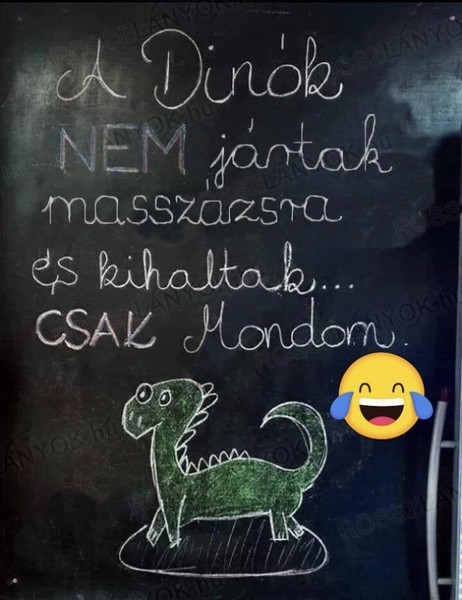 A Dinók
NEM jártak
masszázsra
és kihaltak...
CSAK Mondom.
ROSSZLANYOK.hu